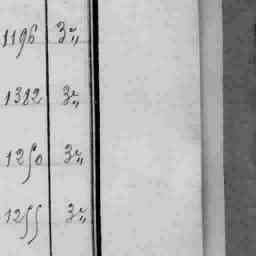 1196 3 "
1382 3 "
1250 3 "
1255 3 "